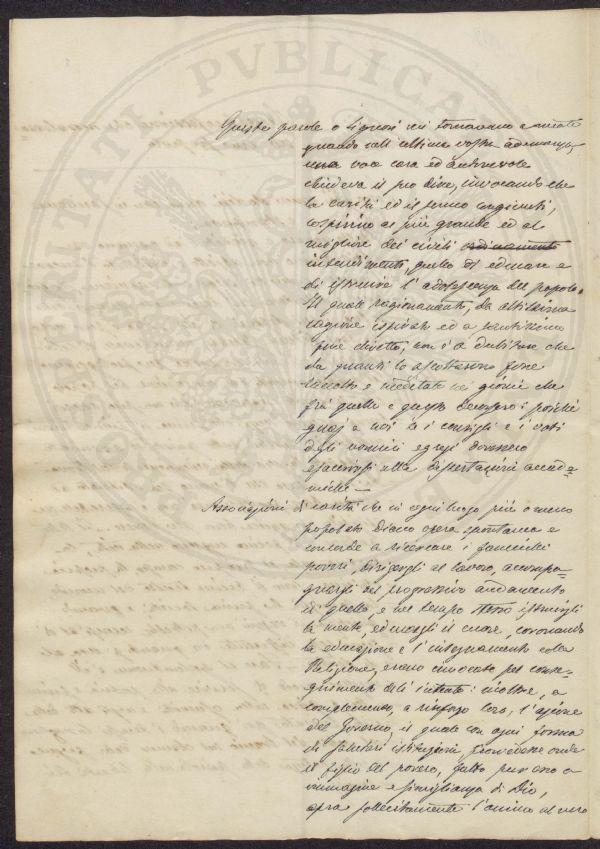 Queste parole o Signori mi tornavano a mente
quando nell'ultima vostra adunanza,
una voce cara ed autorevole
chiudeva il suo dire, invocando che
la carità ed il senno congiunti,
cospirino al più grande ed al
migliore dei civili ordinamento
intendimenti, quello di educare e
di istruire l'adolescenza del popolo.
Il quale ragionamento, da altissima
cagione ispirato ed a santissimo
fine diretto, non è a dubitare che
da quanti lo ascoltarono fosse
raccolto e meditato nei giorni che
fra quello e questo decorsero: poichè
guaj a noi se i consigli e i voti
degli uomini egregi dovessero
esaurirsi nelle dissertazioni accade-
miche.—
Associazioni di carità che in ogni luogo più o meno
popolato diano opera spontanea e
concorde a ricercare i fanciulli
poveri, dirigergli al lavoro, accompa-
gnargli nel progressivo andamento
di quello, e nel tempo istruirgli
la mente, educargli il cuore, coronando
la educazione e l'insegnamento colla
Religione, erano invocate pel conse-
guimento dell'intento: inoltre, a
complemento, a rinforzo loro, l'azione
del Governo, il quale con ogni forma
di salutari istituzioni provvedesse onde
il figlio del povero, fatto pur esso a
immagine e simiglianza di Dio,
apra sollecitamente l'anima al vero
PVBLICA